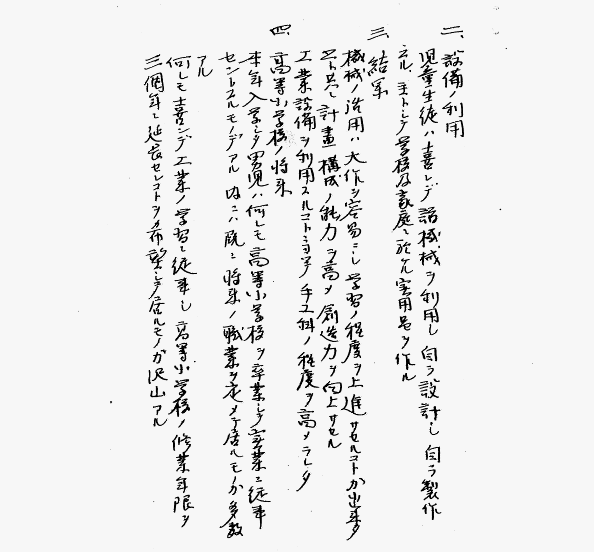 二、設備ノ利用
児童生徒ハ喜ンデ諸機械ヲ利用シ自ラ設計シ自ラ製作
スル、主トシテ学校及家庭ニ於ケル実用品ヲ作ル
三、結果
機械ノ活用ハ大作ヲ容易ニシ学習ノ程度ヲ上進サセルコトガ出来タ
ソレト共ニ計画構成ノ能力ヲ高メ創造力ヲ向上サセル
工業設備ヲ利用スルコトニヨツテ手工科ノ程度ヲ高メラレタ
四、高等小学校ノ将来
本年入学シタ男児ハ何レモ高等小学校ヲ卒業シテ実業ニ従事
セントスルモノデアル 内ニハ既ニ将来ノ職業ヲ定メテ居ルモノガ多数
アル
何レモ喜ンデ工業ノ学習ニ従事シ高等小学校ノ修業年限ヲ
三個年ニ延長セレコトヲ希望シテ居ルモノガ沢山アル